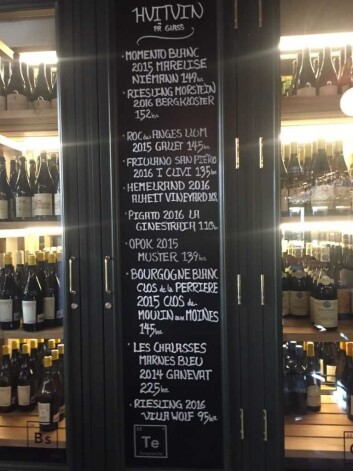 HVITVIN
PÅ GLASS
• MOMENTO BLANC
2015 MARELISE
NIEMANN 149kr
• RIESLING MORSTEIN
2016 BERGKLOSTER
152kr
• ROC des ANGES LLUM
2015 GALLET 145kr
• FRIULANO SAN PIETRO
2016 I CLIVI 135kr
• HEMELRAND 2016
ALHEIT VINEYARD
• PIGATO 2016 LA
GINESTRAIA 110kr
• OPOK 2015
MUSTER 139kr
• BOURGOGNE BLANC
CLOS de la PERRIERE
2015 CLOS du
MOULIN aux MOINES
145kr
• LES CHALASSES
MARNES BLEU
2014 GANEVAT
225kr
• RIESLING 2016
VILLA WOLF 95kr
Te
Bs